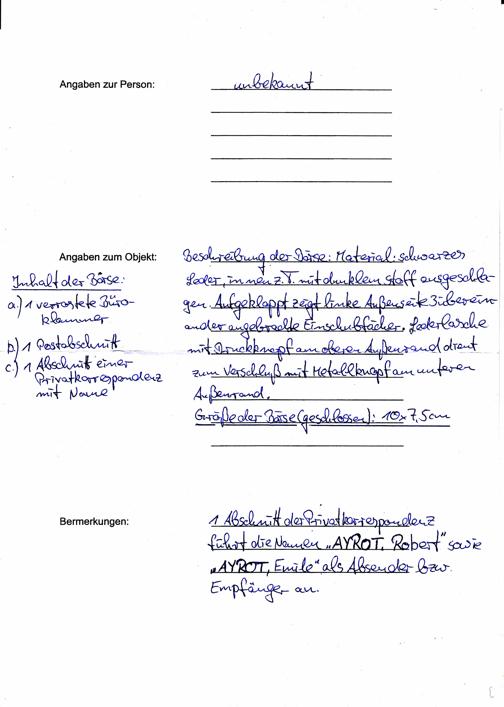 Angaben zur Person:
unbekannt
Angaben zum Objekt:
Beschreibung der Börse: Material: schwarzes
Leder, innen z.T. mit dunklem Stoff ausgeschla-
gen. Aufgeklappt zeigt linke Außenseite 3 überein-
ander angebrachte Einschubfächer. Lederlasche
mit Druckknopf am oberen Außenrand dient
zum Verschluß mit Metallknopf am unteren
Außenrand.
Größe der Börse (geschlossen): 10x7,5cm
Inhalt der Börse:
a.) 1 verrostete Büro-
klammer
b) 1 Postabschnitt
c.) 1 Abschnitt einer
Privatkorrespondenz
mit Name
Bermerkungen:
1 Abschnitt der Privatkorrespondenz
führt die Namen „AYROT, Robert" sowie
„AYROT, Emile" als Absender bzw.
Empfänger an.